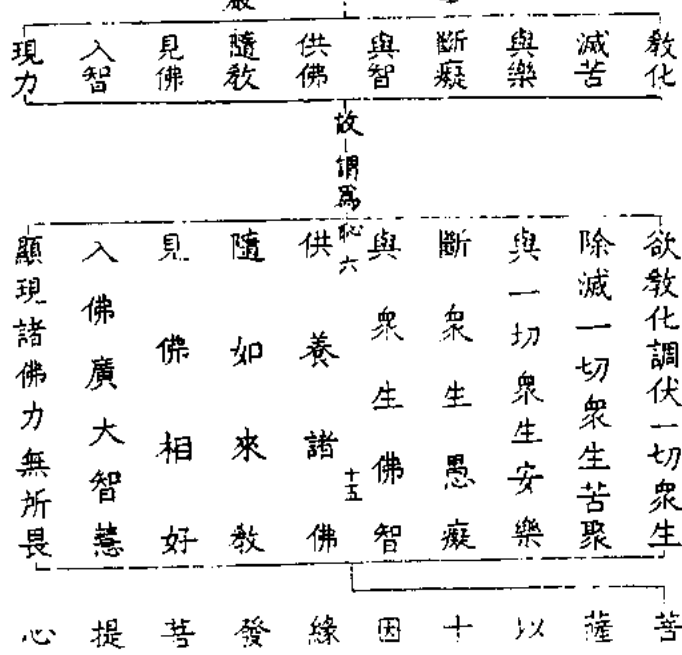 教化
滅苦
與樂
斷癡
與智
供佛
隨教
見佛
入智
現力
故
謂爲
恥六
欲教化調伏一切衆生
除滅一切衆生苦聚
與一切衆生安樂
斷衆生愚癡
與衆生佛智
十五
供養諸佛
隨如來教
見佛相好
入佛廣大智慧
顯現諸佛力無所畏
菩薩以十因緣發菩提心